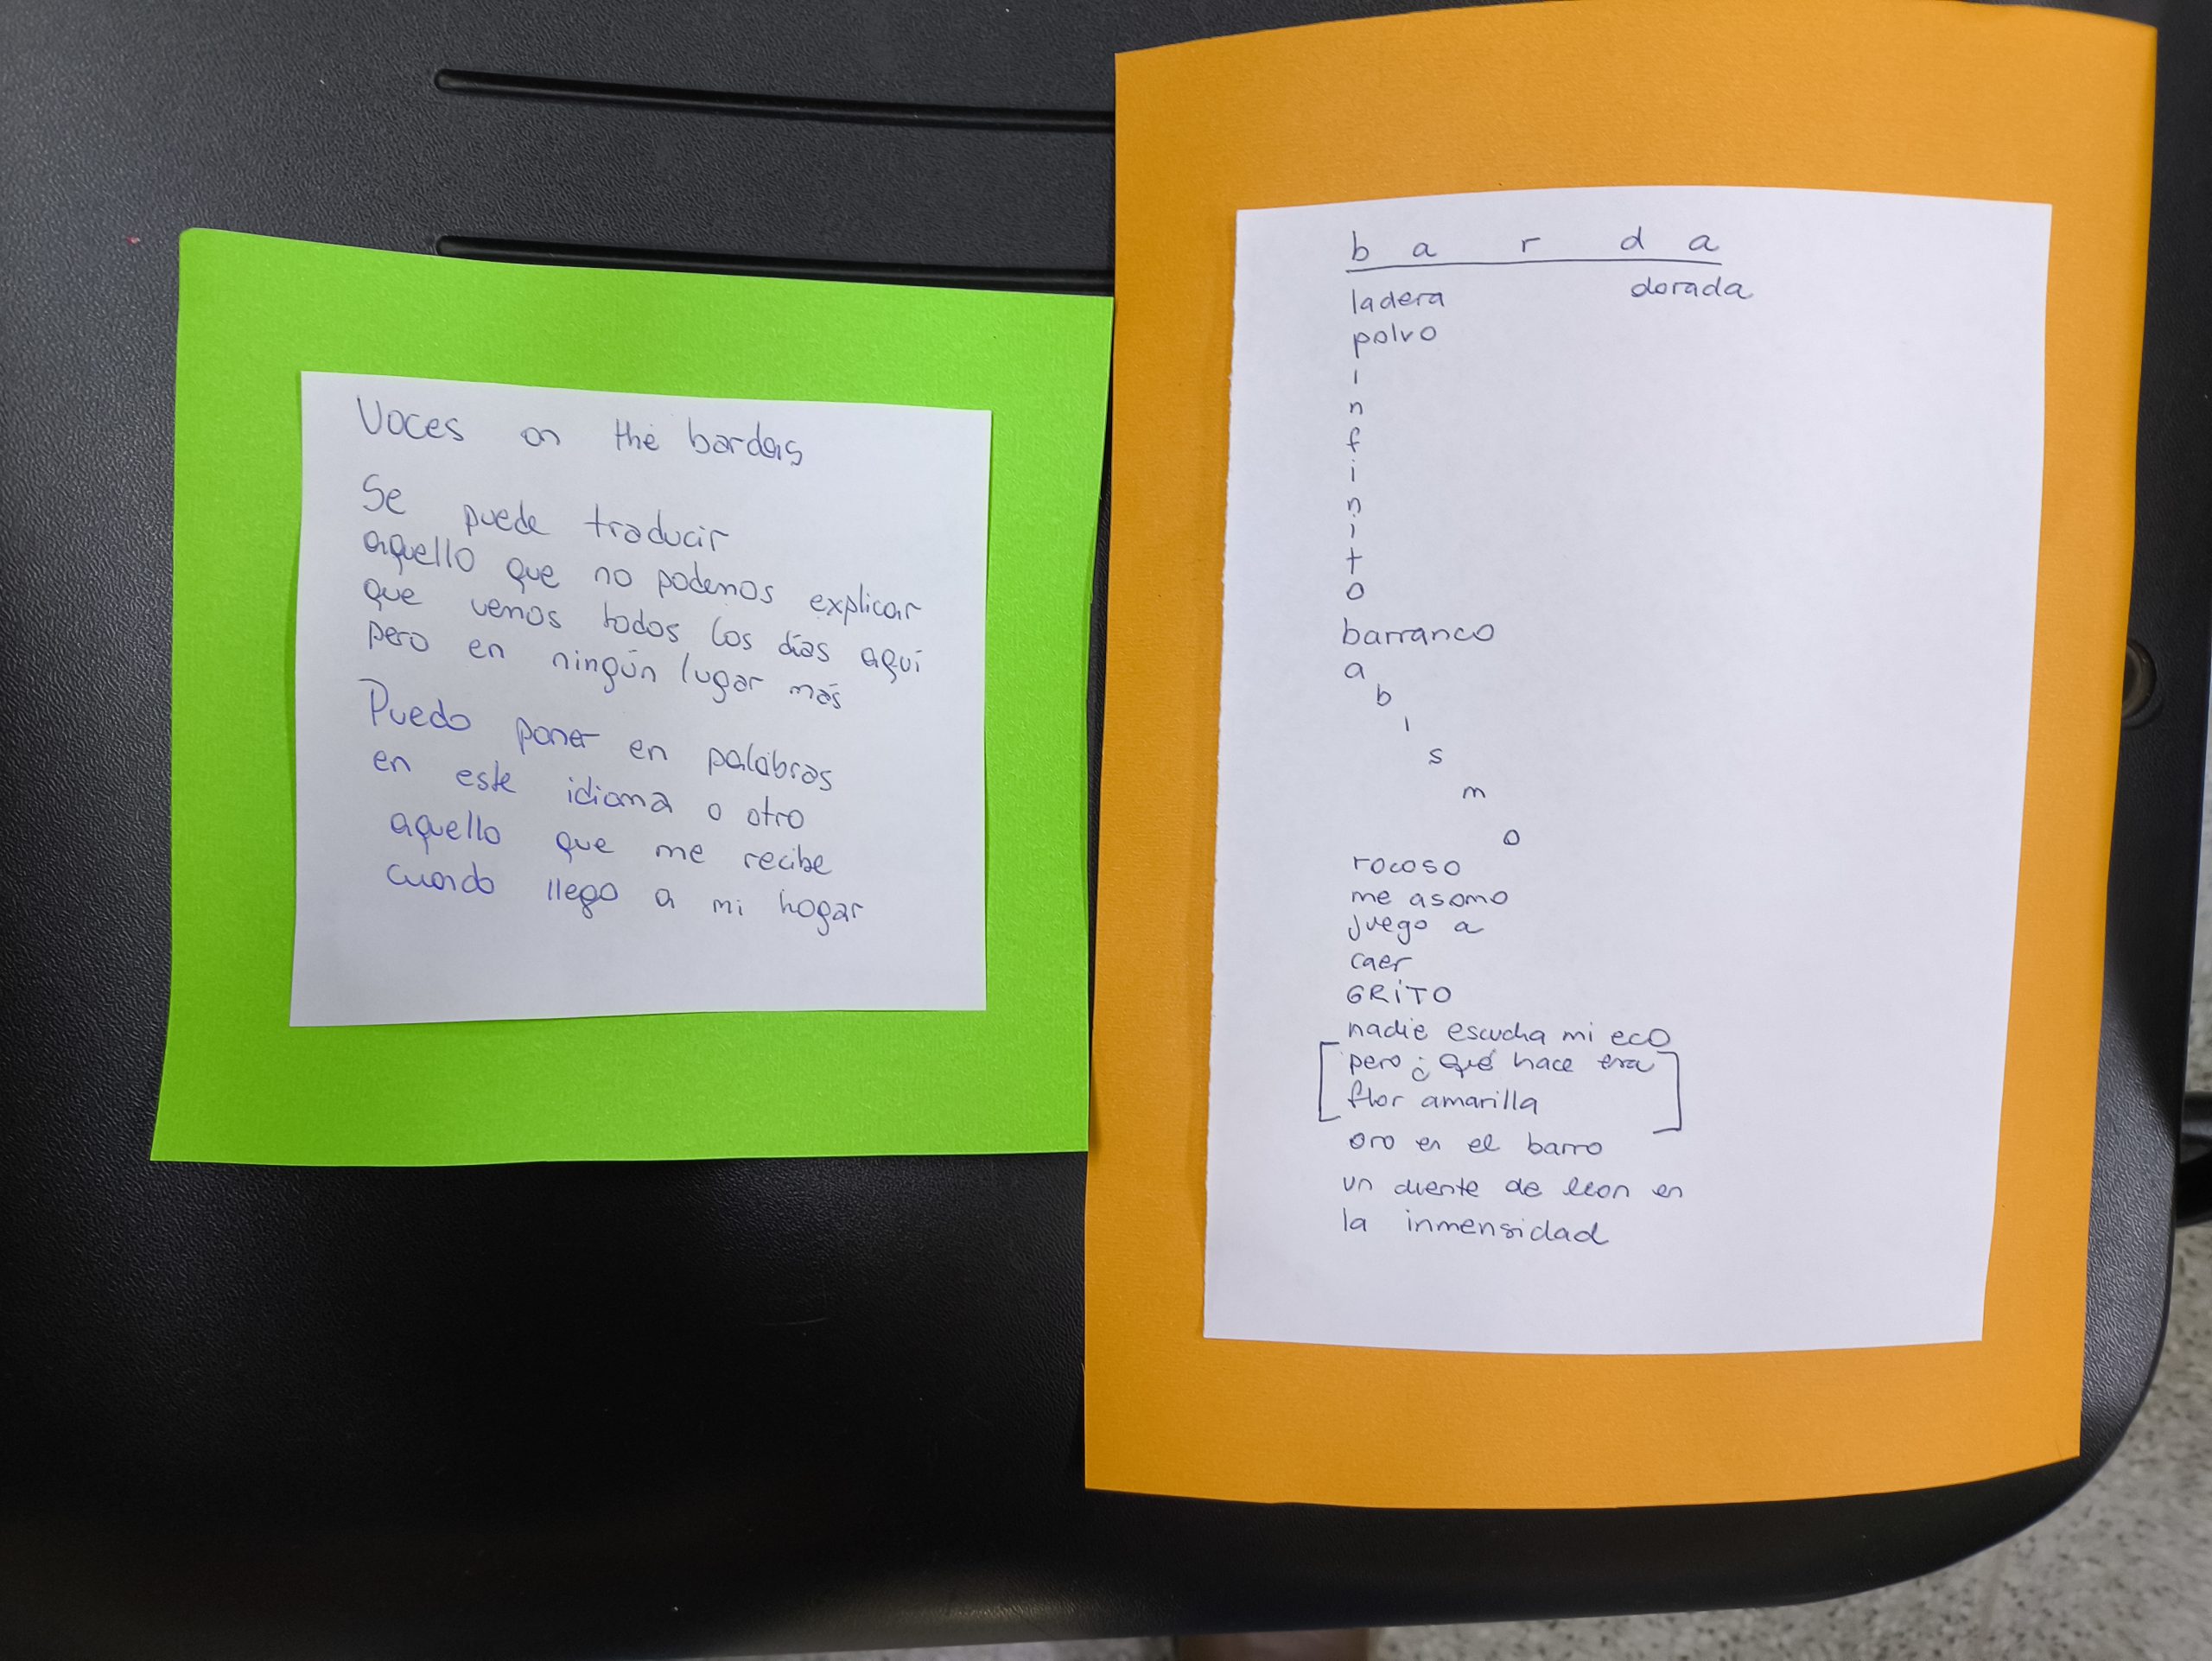 Voces on the bardas
Se puede traducir
aquello que no podemos explicar
que vemos todos los días aquí
pero en ningún lugar más
Puedo poner en palabras
en este idioma o otro
aquello que me recibe
cuando llego a mi hogar
b a r d a
ladera dorada
polvo
i
n
f
i
n
i
t
o
barranco
a
b
i
s
m
o
rocoso
me asomo
juego a
caer
GRITO
nadie escucha mi eco
[pero ¿qué hace esa
flor amarilla]
oro en el barro
un diente de leon en
la inmensidad